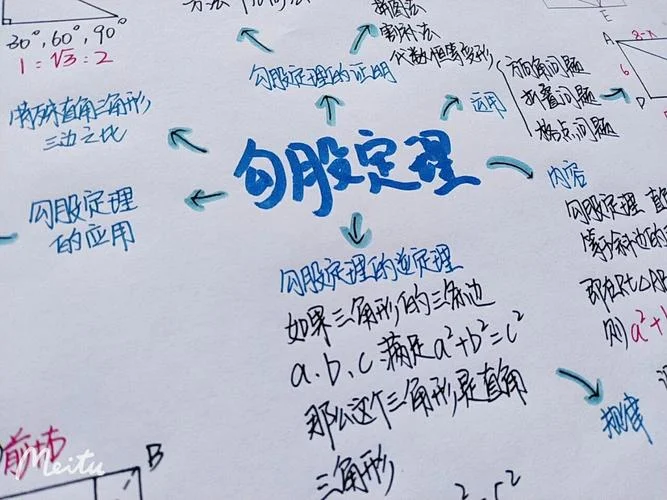 30°,60°,90°
1:√3:2
方法
割补法
代数恒等变形
勾股定理的证明
运用
方向角问题
折叠问题
格点问题
A
E
8-x
6
D
特殊直角三角形
三边之比
勾股定理
勾股定理
的应用
内容
勾股定理 直
等于斜边的
即在Rt△AB
则a²+b
勾股定理的逆定理
如果三角形的三条边
a.b.c满足a²+b²=c²
那么这个三角形是直角
三角形
B
Meitu